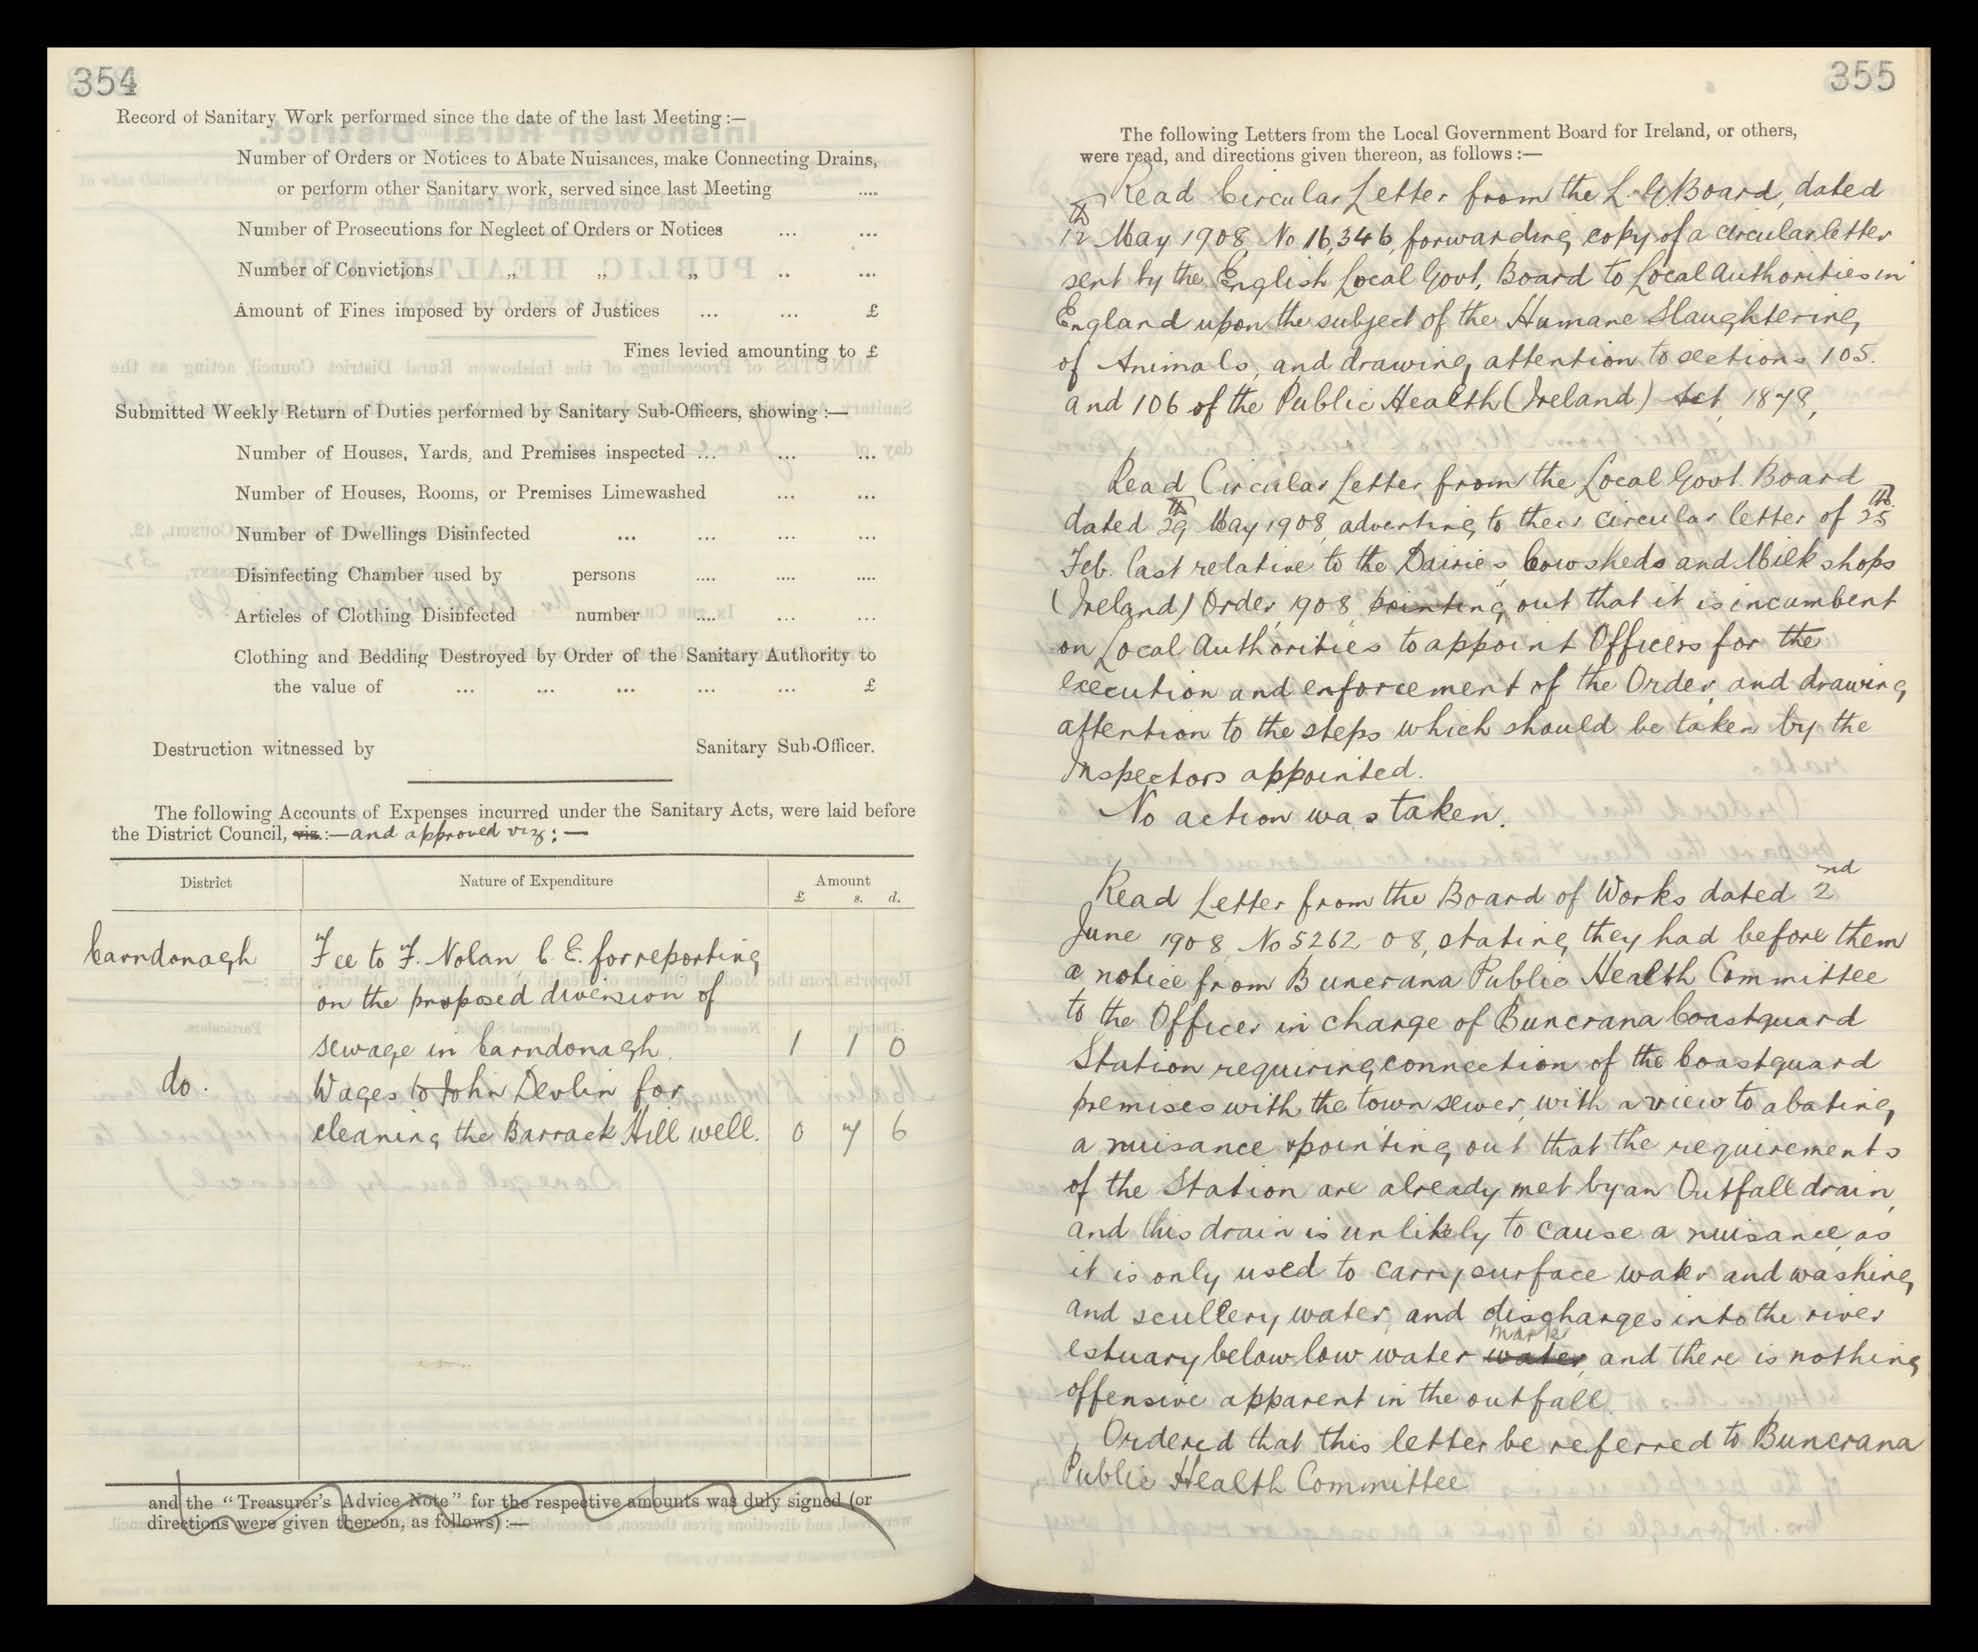 354
Record of Sanitary Work performed since the date of the last Meeting :—
Number of Orders or Notices to Abate Nuisances, make Connecting Drains,
or perform other Sanitary work, served since last Meeting ....
Number of Prosecutions for Neglect of Orders or Notices ... ...
Number of Convictions „ „ „ .. ...
Amount of Fines imposed by orders of Justices ... ... £
Fines levied amounting to £
Submitted Weekly Return of Duties performed by Sanitary Sub-Officers, showing :—
Number of Houses, Yards, and Premises inspected ... ... ...
Number of Houses, Rooms, or Premises Limewashed ... ...
Number of Dwellings Disinfected ... ... ... ...
Disinfecting Chamber used by persons .... .... ....
Articles of Clothing Disinfected number .... ... ...
Clothing and Bedding Destroyed by Order of the Sanitary Authority to
the value of ... ... ... ... ... £
Destruction witnessed by Sanitary Sub-Officer.
The following Accounts of Expenses incurred under the Sanitary Acts, were laid before
the District Council, viz.:—and approved viz:—
District Nature of Expenditure Amount
£ s. d.
Carndonagh Fee to F. Nolan C.E. for reporting
on the proposed diversion of
sewage in Carndonagh. 1 1 0
do. Wages to John Devlin for
cleaning the Barrack Hill well. 0 7 6
and the "Treasurer's Advice Note" for the respective amounts was duly signed (or
directions were given thereon, as follows) :—
355
The following Letters from the Local Government Board for Ireland, or others,
were read, and directions given thereon, as follows :—
Read Circular Letter from the L. G. Board, dated
12th May 1908, No 16,346, forwarding copy of a circular letter
sent by the English Local Govt. Board to Local Authorities in
England upon the subject of the Humane Slaughtering
of Animals, and drawing attention to sections 105.
and 106 of the Public Health (Ireland) Act, 1878,
Read Circular Letter from the Local Govt. Board
dated 29th May 1908, adverting to their circular letter of 25th
Feb. last relative to the Dairies, Cowsheds and Milk shops
(Ireland) Order, 1908, pointing out that it is incumbent
on Local Authorities to appoint Officers for the
execution and enforcement of the Order, and drawing
attention to the steps which should be taken by the
Inspectors appointed.
No action was taken.
Read Letter from the Board of Works dated 2nd
June 1908, No 5262-08, stating they had before them
a notice from Buncrana Public Health Committee
to the Officer in charge of Buncrana Coastguard
Station requiring connection of the Coastguard
premises with the town sewer, with a view to abating
a nuisance & pointing out that the requirements
of the Station are already met by an Outfall drain,
and this drain is unlikely to cause a nuisance, as
it is only used to carry surface water and washing
and scullery water, and discharges into the river
estuary below low water water mark, and there is nothing
offensive apparent in the outfall.
Ordered that this letter be referred to Buncrana
Public Health Committee